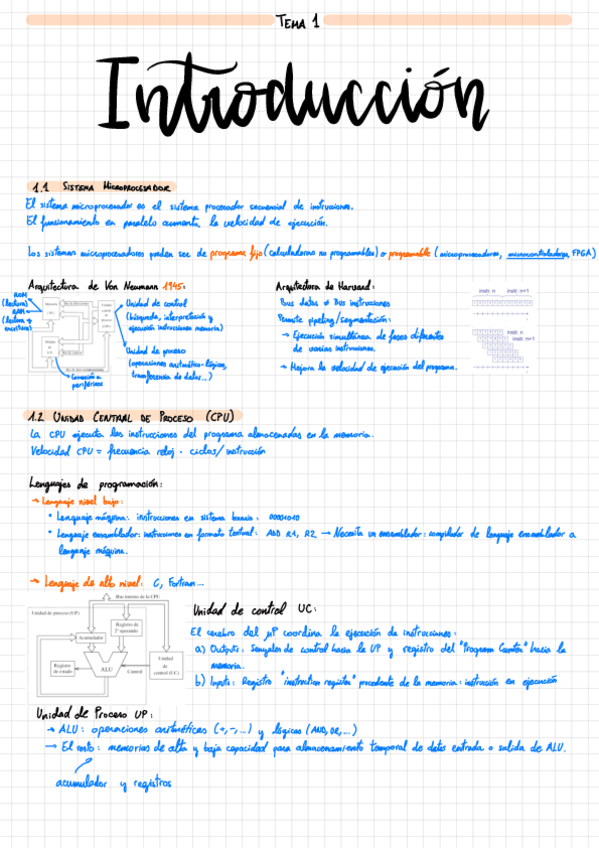 TEMA 1
Introducción
1.1 SISTEMA MICROPROCESADOR
El sistema microprocesador es el sistema procesador secuencial de instrucciones.
El funcionamiento en paralelo aumenta la velocidad de ejecución.
Los sistemas microprocesadores pueden ser de programa fijo (calculadoras no programables) o programable (microprocesadores, microcontroladores, FPGA)
Arquitectura de Von Neumann 1945:
ROM
(lectura)
RAM
(lectura y
escritura)
Unidad de control
(búsqueda, interpretación y
ejecución instrucciones memoria)
Unidad de proceso
(operaciones aritmético-lógicas,
transferencia de datos...)
Conexión a
periféricos
Arquitectura de Harvard:
Bus datos ≠ Bus instrucciones
Permite pipeling/segmentación:
→ Ejecución simultánea de fases diferentes
de varias instrucciones.
→ Mejora la velocidad de ejecución del programa.
instr. n instr. n+1
instr. n
instr. n+1
1.2 UNIDAD CENTRAL DE PROCESO (CPU)
La CPU ejecuta las instrucciones del programa almacenadas en la memoria.
Velocidad CPU = frecuencia reloj · ciclos/instrucción
Lenguajes de programación:
→ Lenguaje nivel bajo:
• Lenguaje máquina: instrucciones en sistema binario: 00001010
• Lenguaje ensamblador: instrucciones en formato textual: ADD R1, R2 → Necesita un ensamblador: compilador de lenguaje ensamblador a
lenguaje máquina.
→ Lenguaje de alto nivel: C, Fortran...
Bus interno de la CPU
Unidad de proceso (UP)
Registro de
2º operando
Acumulador
Registro
de estado
ALU
Control
Unidad
de
control (UC)
Unidad de control UC:
El cerebro del μP coordina la ejecución de instrucciones:
a) Outputs: Señales de control hacia la UP y registro del "Program Counter" hacia la
memoria.
b) Inputs: Registro "instruction register" procedente de la memoria: instrucción en ejecución
Unidad de Proceso UP:
→ ALU: operaciones aritméticas (+,-,...) y lógicas (AND, OR,...)
→ El resto: memorias de alta y baja capacidad para almacenamiento temporal de datos entrada o salida de ALU.
acumulador y registros